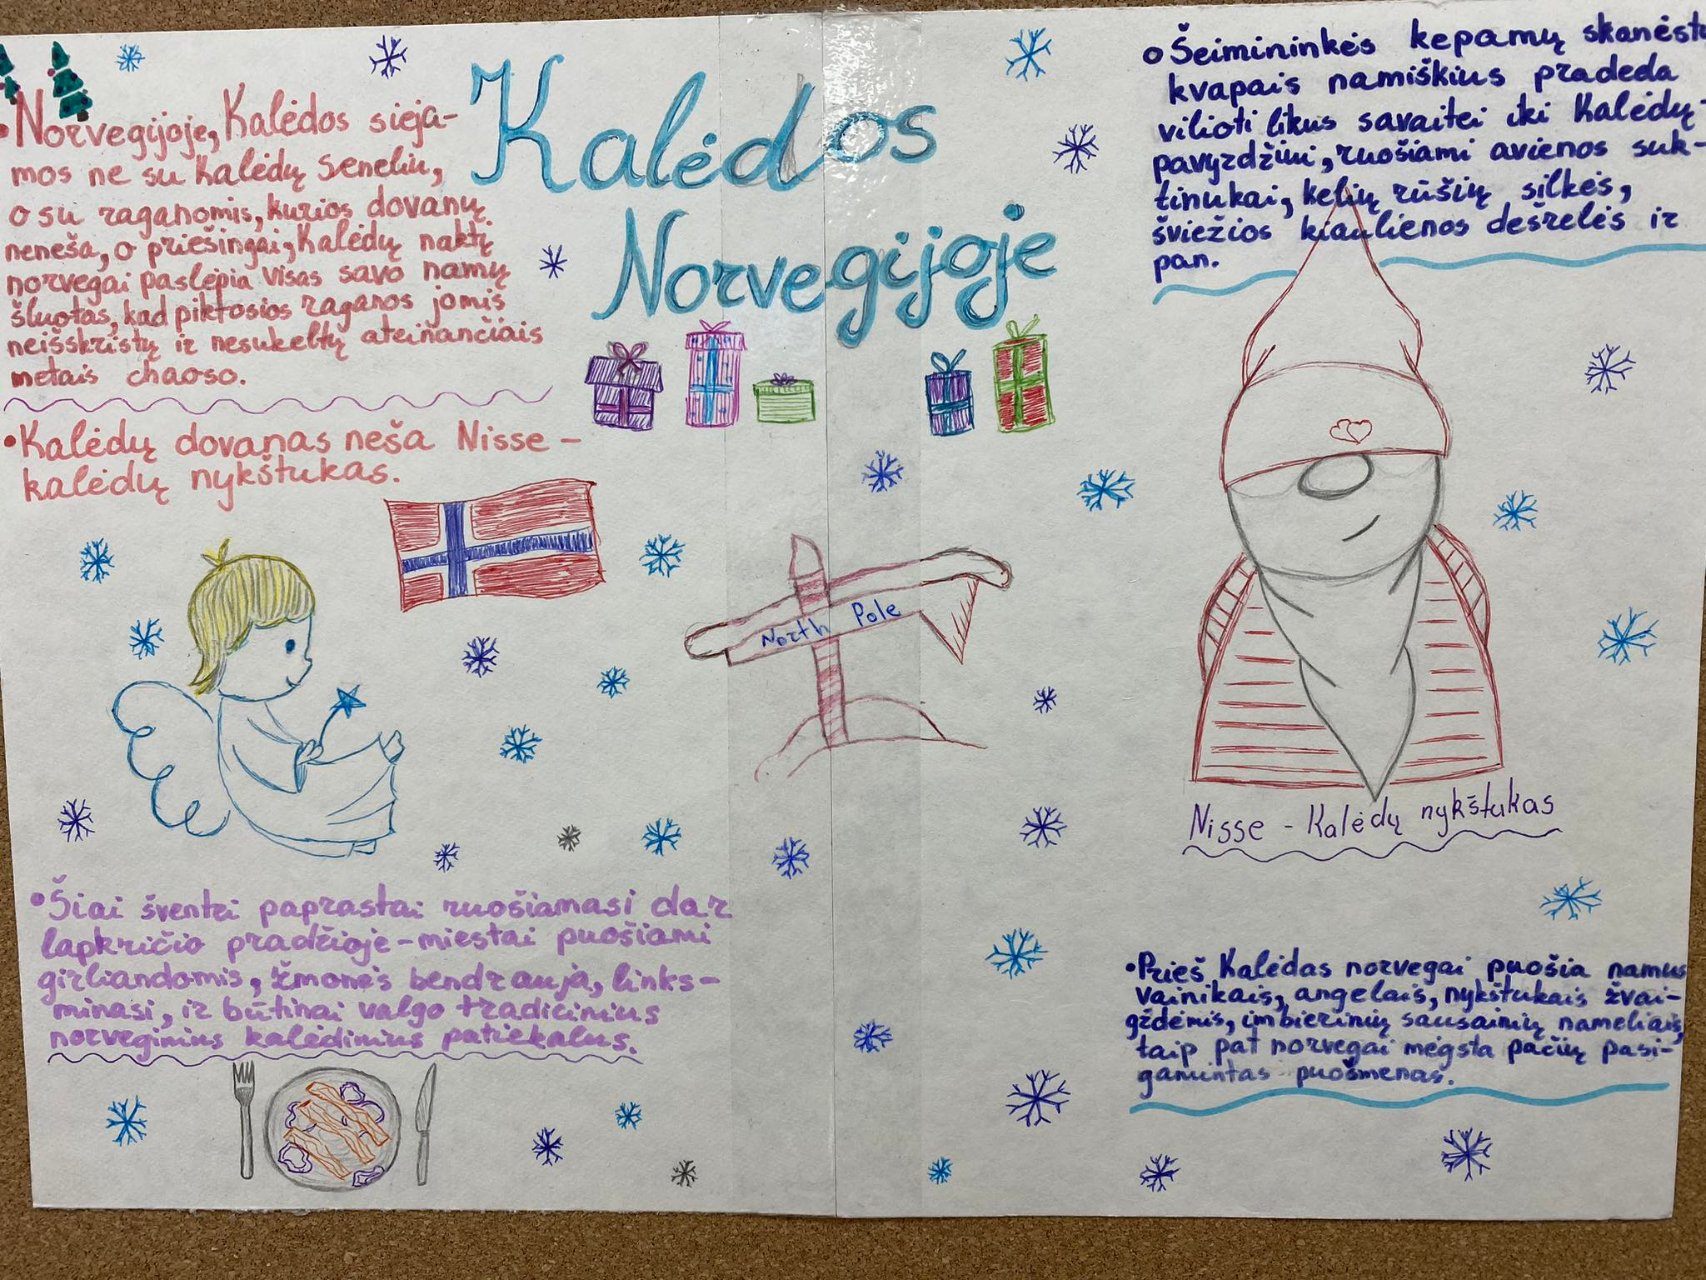 Kalėdos
Norvegijoje
• Norvegijoje, Kalėdos sieja-
mos ne su Kalėdų Seneliu,
o su raganomis, kurios dovanų
neneša, o priešingai, Kalėdų naktį
norvegai paslėpia visas savo namų
šluotas, kad piktosios raganos jomis
neišskristų ir nesukeltų ateinančiais
metais chaoso.
• Kalėdų dovanas neša Nisse -
kalėdų nykštukas.
North Pole
• Šiai šventei paprastai ruošiamasi dar
lapkričio pradžioje - miestai puošiami
girliandomis, žmonės bendrauja, links-
minasi, ir būtinai valgo tradicinius
norveginius kalėdinius patiekalus.
o Šeimininkės kepamų skanėstų
kvapais namiškius pradeda
vilioti likus savaitei iki Kalėdų.
pavyzdžiui, ruošiami avienos suk-
tinukai, kelių rūšių silkės,
šviežios kiaulienos dešrelės ir
pan.
Nisse - Kalėdų nykštukas
• Prieš Kalėdas norvegai puošia namus
vainikais, angelais, nykštukais žvai-
gždėmis, imbierinių sausainių nameliais,
taip pat norvegai mėgsta pačių pasi-
gamintas puošmenas.